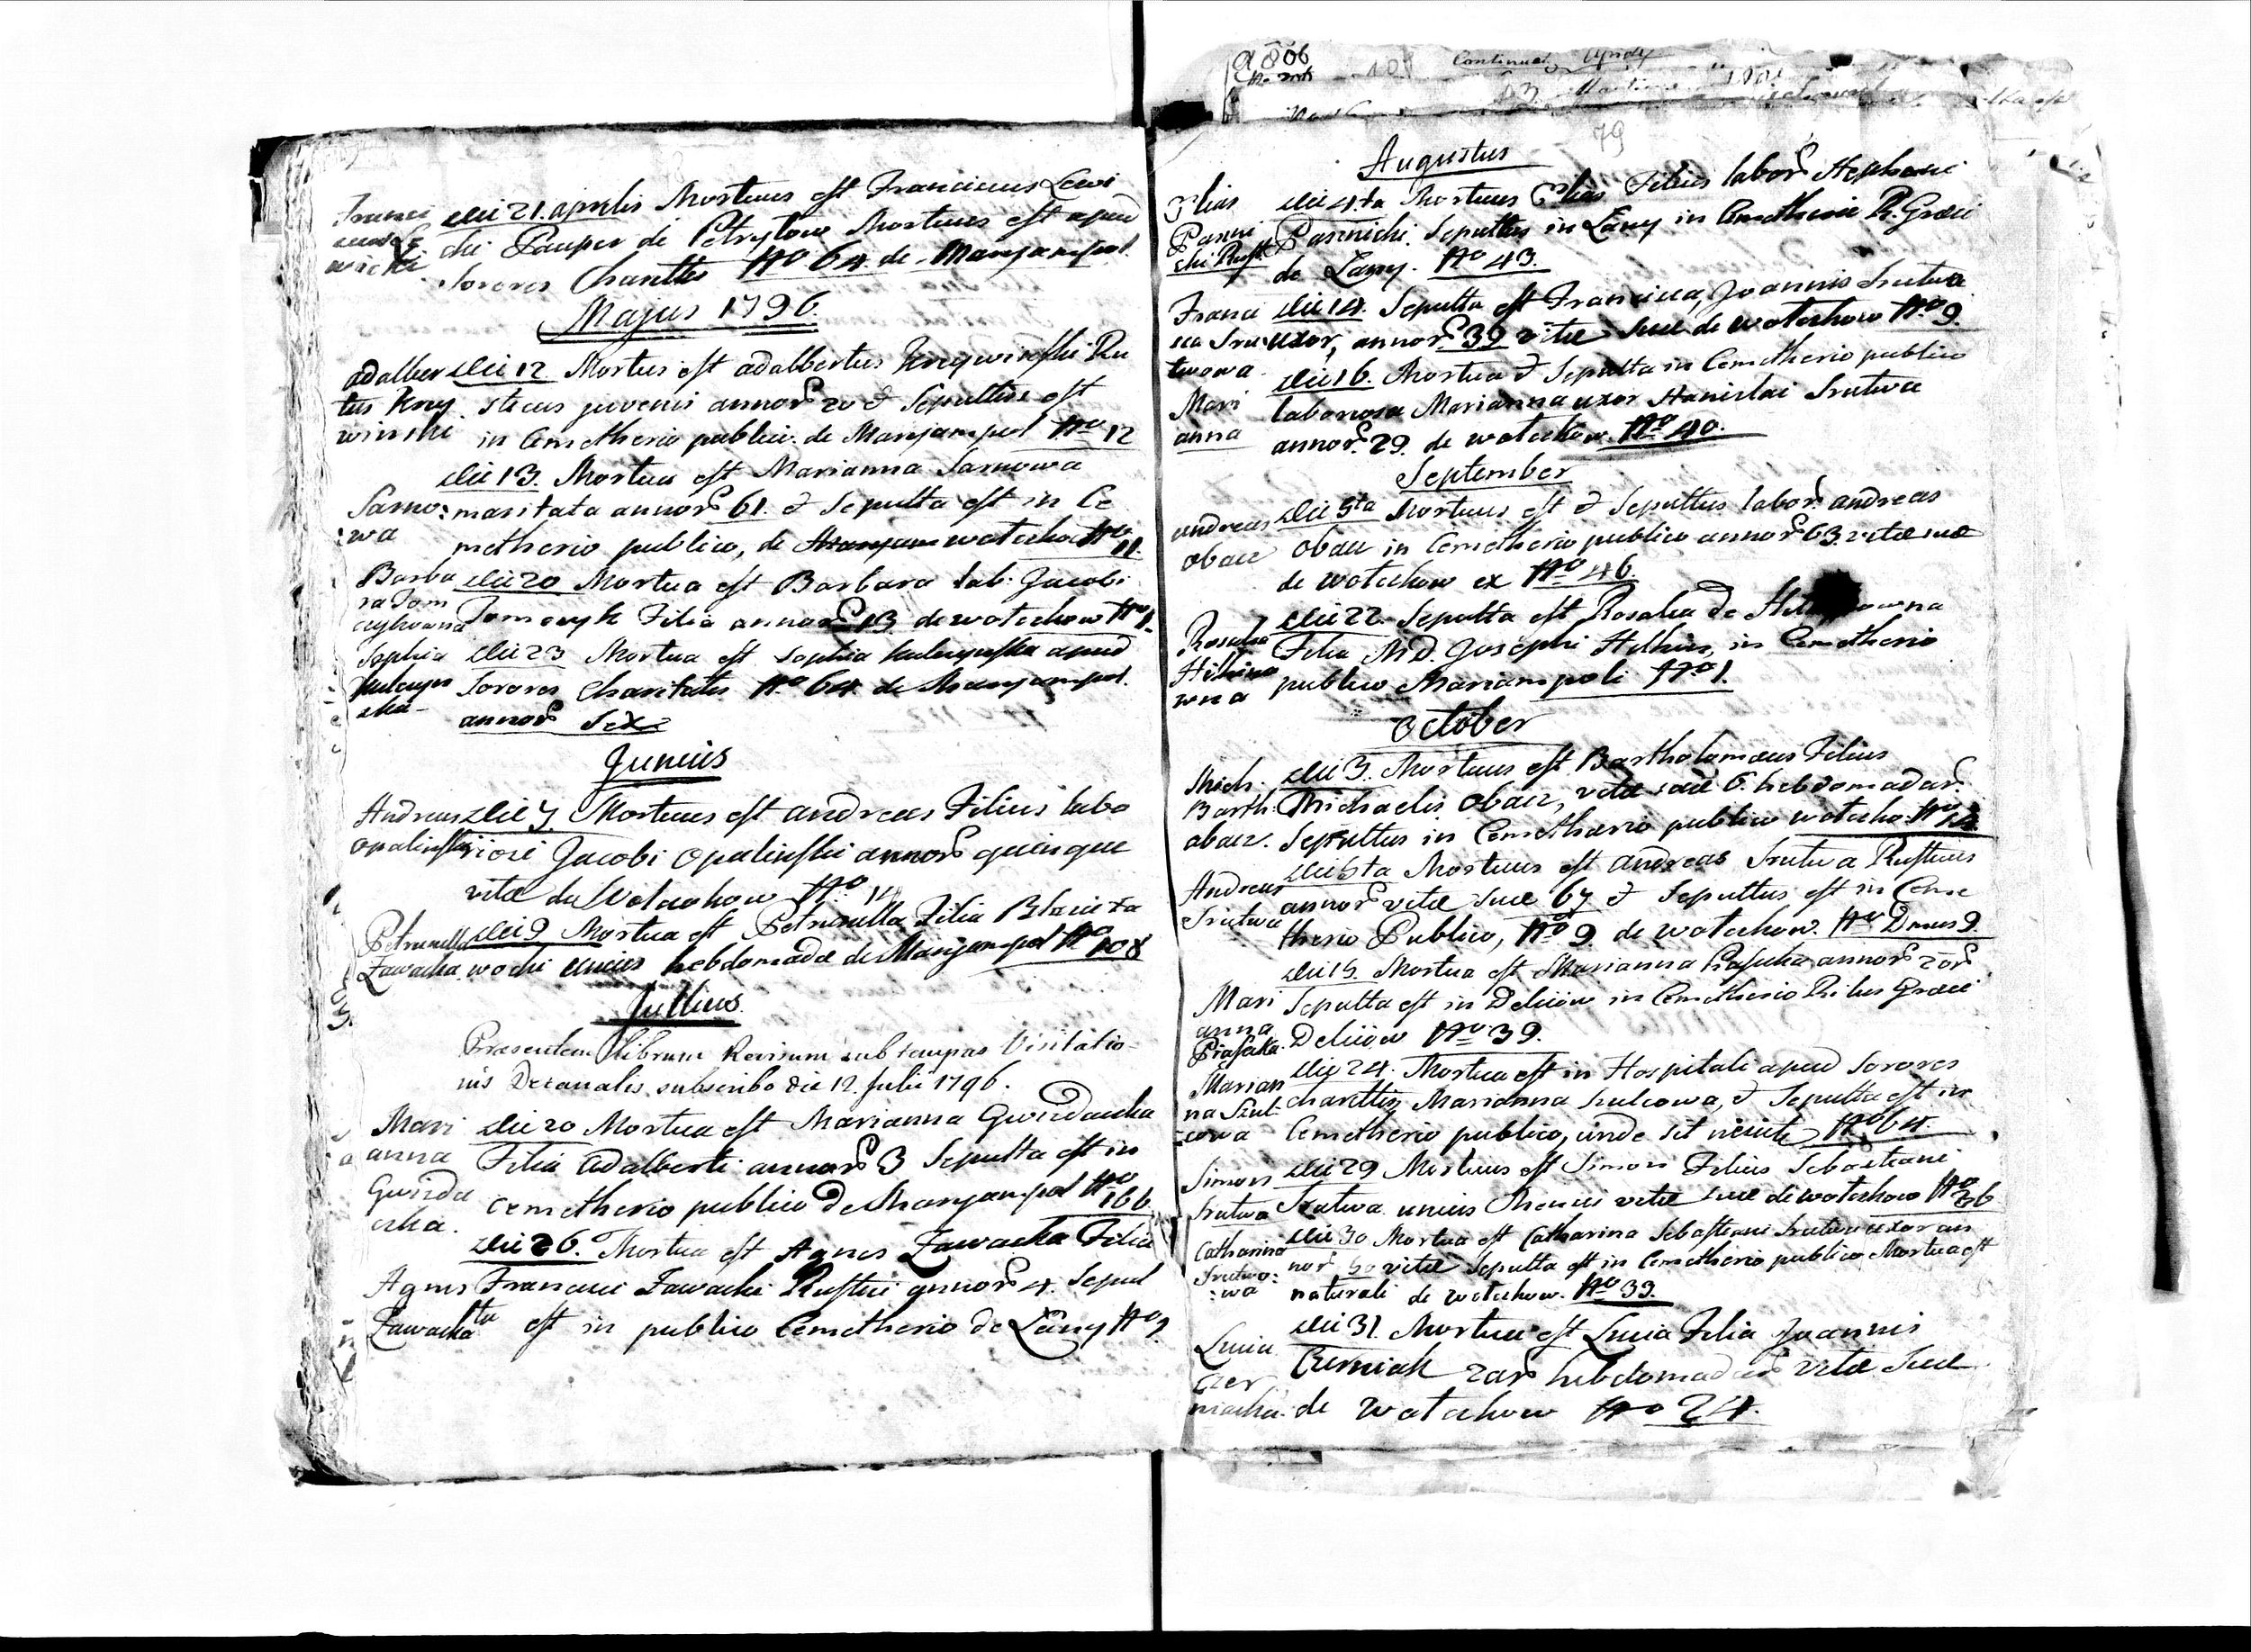 die 21. aprilis Mortuus est Franciscus Lewi
cki Pauper de Petrylow Mortuus est apud
Sorores Charitt. No 64. de Maryampol.
Majus 1796.
Adalber
tus Kry
winski
die 12 Mortus est adalbertus Krywinski Ru
sticus juvenis annor 20 & Sepultus est
in Cemetherio publico de Maryampol No 12
Sarno:
:wa
die 13. Mortua est Marianna Sarnowa
maritata annor 61. & Sepulta est in Ce
metherio publico, de wotcchow No 11.
Barba
ra Tom
czykowna
die 20 Mortua est Barbara lab: Jacobi
Tomczyk Filia annor 13 de wotochow No 1.
Sophia
die 23 Mortua est Sophia apud
Sorores Charitatis No 64 de Maryampol.
annor Sex
Junius
Andreas
Opalinski
die 7 Mortuus est andreas Filius labo
riosi Jacobi Opalinski annor quinque
vitæ de Wolochow No 14
Petrunella
Zawacka
die 9 Mortua est Petrunella Filia Blasii Za
wacki unius hebdomadæ de Maryampol No 108
Jullius.
Præsentem librum Revisum sub tempus Visitatio-
nis Decanalis subscribo die 12. Julii 1796.
Mari
anna
Gwizda
cka.
die 20 Mortua est Marianna Gwizdacka
Filia Adalberti annor 3 Sepulta est in
Cemetherio publico de Maryampol No 166
Agnes
Zawacka
die 26. Mortua est Agnes Zawacka Filia
Francisci Zawacki Rustici annor 4. Sepul
ta est in publico Cemetherio de Łany No
79
Augustus
Elias
Pasni
cki Rust
die 4.ta Mortuus Elias Filius labor Stephani
Pasnicki. Sepultus in Łany in Cemetherio R. Græci
de Łany. No 43.
Franci
ca Sru
twowa
die 14. Sepulta est Francisca, Joannis Srutwa
uxor, annor 39 vitæ suæ de wotochow No 9.
Mari
anna
die 16. Mortua & Sepulta in Cemetherio publico
laboriosa Marianna uxor Stanislai Srutwa
annor 29. de wotochow No 40.
September
andreas
obacz
die 5ta Mortuus est & Sepultus labor andreas
obacz in Cemetherio publico annor 63. vitæ suæ
de wotochow ex No 46.
Rosalia
die 22. Sepulta est Rosalia de
Filia M.D. Josephi in Cemetherio
publico Mariampoli No 1.
October
Mich.
Barth:
obacz.
die 3. Mortuus est Bartholomæus Filius
Michaelis Obacz, vitæ suæ 6. hebdomadar.
Sepultus in Cemetherio publico wotocho. No
Andreas
Srutwa
die 5ta Mortuus est andreas Srutwa Rusticus
annor vitæ suæ 67 & Sepultus est in Ceme
therio Publico, No 9 de wotochow. No Domus 9.
Mari
anna
Piasecka.
die 15. Mortua est Marianna Piasecka annor 2or
Sepulta est in Deliiow in Cemetherio Ritus Græci
Deliiow No 39.
Marian
na Szul
cowa
die 24. Mortua est in Hospitali apud Sorores
charitt. Marianna Szulcowa, & Sepulta est in
Cemetherio publico, unde sit nescitr No 64.
Simon
Srutwa
die 29 Mortuus est Simon Filius Sebastiani
Srutwa unius Mensis vitæ suæ de wotochow No 36
Catharina
Srutwo:
:wa
die 30 Mortua est Catharina Sebastiani Srutwa uxor an
nor 50 vitæ Sepulta est in Cemetherio publico Mortua est
naturali de wotochow. No 39.
Lucia
Czer
niacka.
die 31. Mortua est Lucia Filia Joannis
Czerniak 2ar hebdomadar vitæ suæ
de wotochow No 24.